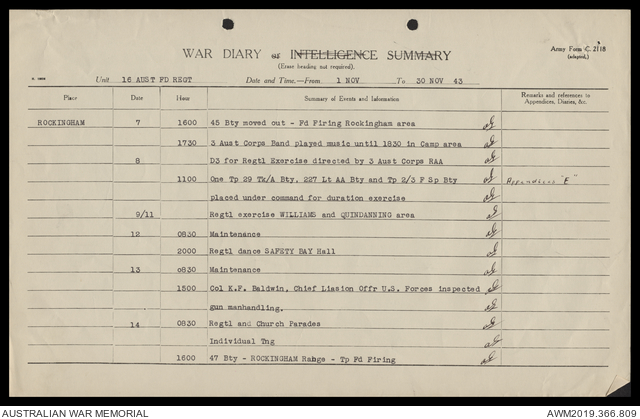 WAR DIARY or INTELLIGENCE SUMMARY
Army Form C. 2118
(Erase heading not required).
(adapted.)
Unit 16 AUST FD REGT Date and Time.—From 1 NOV To 30 NOV 43
Place Date Hour Summary of Events and Information Remarks and references to Appendices, Diaries, &c.
ROCKINGHAM 7 1600 45 Bty moved out - Fd Firing Rockingham area
1730 3 Aust Corps Band played music until 1830 in Camp area
8 D3 for Regtl Exercise directed by 3 Aust Corps RAA
1100 One Tp 29 Tk/A Bty, 227 Lt AA Bty and Tp 2/3 F Sp Bty Appendices "E"
placed under command for duration exercise
9/11 Regtl exercise WILLIAMS and QUINDANNING area
12 0830 Maintenance
2000 Regtl dance SAFETY BAY Hall
13 0830 Maintenance
1500 Col K.F. Baldwin, Chief Liasion Offr U.S. Forces inspected
gun manhandling.
14 0830 Regtl and Church Parades
Individual Tng
1600 47 Bty - ROCKINGHAM Range - Tp Fd Firing
AUSTRALIAN WAR MEMORIAL AWM2019.366.809